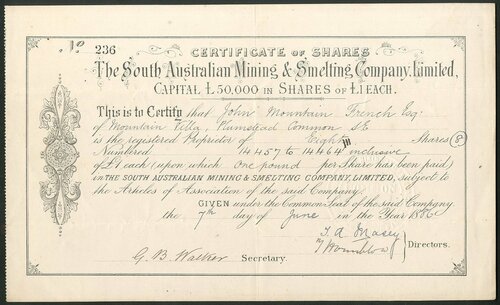 No 236
CERTIFICATE OF SHARES
The South Australian Mining & Smelting Company, Limited,
CAPITAL £50,000 IN SHARES OF £1 EACH.
This is to Certify that John Mountain French Esq:
of Mountain Villa, Plumstead Common SE
is the registered Proprietor of Eight Shares (8)
Numbered 14457 to 14464 inclusive
of £1 each (upon which one pound per Share has been paid)
IN THE SOUTH AUSTRALIAN MINING & SMELTING COMPANY, LIMITED, subject to
the Articles of Association of the said Company.
GIVEN under the Common Seal of the said Company
the 7th day of June in the Year 1886
Directors.
G. B. Walker Secretary.